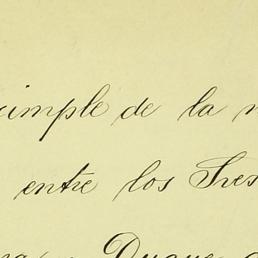 simple de la
entre los Sres
Duque